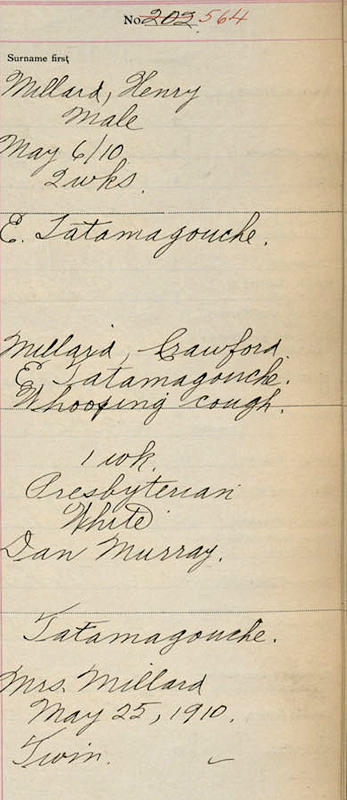 No. 202 564
Surname first,
Millard, Henry
Male
May 6/10
2 wks.
E. Tatamagouche.
Millard, Crawford
E. Tatamagouche.
Whooping cough.
1 wk.
Presbyterian
White
Dan Murray.
Tatamagouche.
Mrs. Millard
May 25, 1910.
Twin. ✓